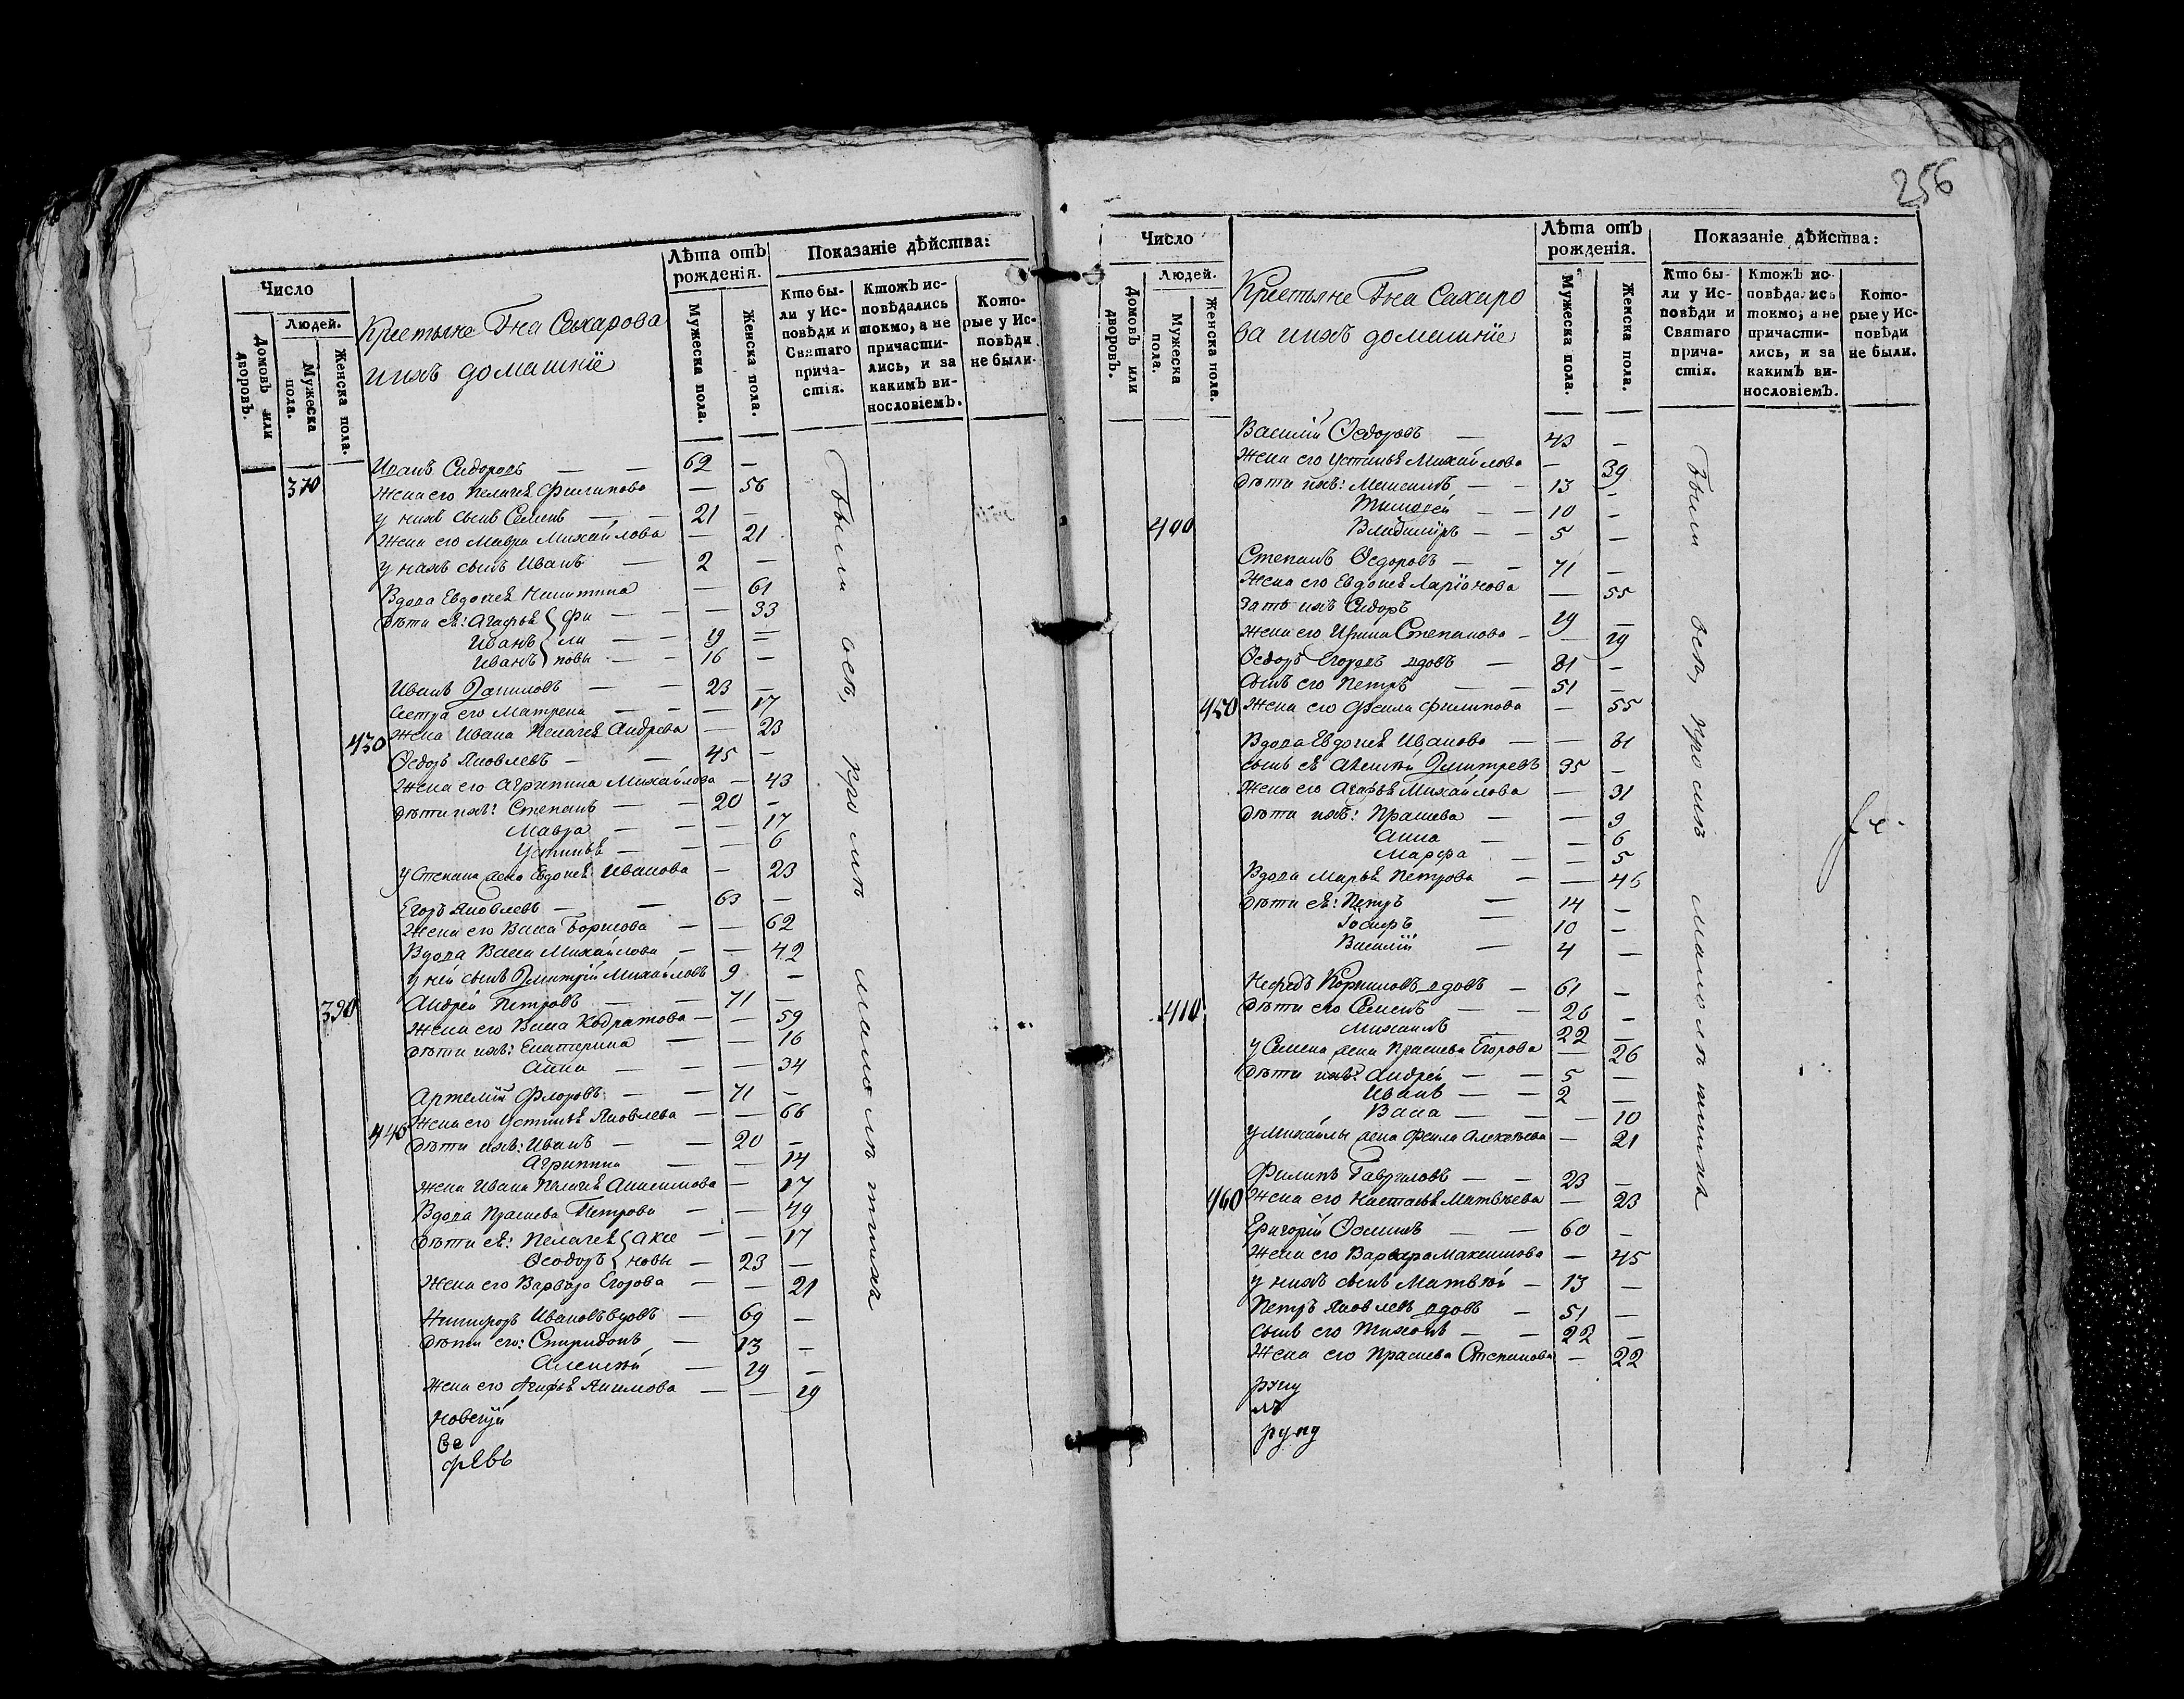 256
Число
Людей.
Домовъ или дворовъ.
Мужеска пола.
Женска пола.
Крестьяне Гна Сахарова
и ихъ домашнїе
Лѣта отъ рожденія.
Мужеска пола.
Женска пола.
Показаніе дѣйства:
Кто были у Исповѣди и Святаго причастія.
Ктожъ исповѣдались токмо, а не причастились, и за какимъ винословіемъ.
Которые у Исповѣди не были.
Иванъ Сидоровъ — — 62 —
370 Жена его Пелагея Филипова — 56
у нихъ сынъ Семенъ — — 21 —
Жена его Мавра Михайлова — 21
у нихъ сынъ Иванъ — 2 —
Вдова Евдокея Никитина — 61
Дѣти ея: Агафья } Фи — — 33
Иванъ } ли — — 19 —
Иванъ } повы — — 16 —
Иванъ Даниловъ — — 23 —
Сестра его Матрена — — — 17
430 Жена Ивана Пелагея Андрева — 23
Ѳедоръ Яковлевъ — — 45 —
Жена его Агрипина Михайлова — 43
Дѣти ихъ: Степанъ — — 20 —
Мавра — — — 17
Устинья — — — 6
у Степана жена Евдокея Иванова — 23
Егоръ Яковлевъ — — 63 —
Жена его Васса Борисова — — 62
Вдова Васса Михайлова — — 42
у ней сынъ Дмитрїй Михайловъ 9 —
390 Андрей Петровъ — — 71 —
Жена его Васса Кодратова — — 59
Дѣти ихъ: Екатерина — — 16
Анна — — — 34
Артемїй Флоровъ — — 71 —
440 Жена его Устинья Яковлева — — 66
Дѣти ихъ: Иванъ — — 20 —
Агрипина — — 14
Жена Ивана Пелагея Анисимова — 17
Вдова Прасковья Петрова — — 49
Дѣти ея: Пелагея } Аксе — — 17
Ѳеодоръ } новы — 23 —
Жена его Варвара Егорова — — 21
Никифоръ Ивановъ вдовъ — 69 —
Дѣти его: Спиридонъ — 13 —
Алексѣй — 19 —
Жена его Агафья Якимова — — 19
Были всѣ, кромѣ малолѣтнихъ
Число
Людей.
Домовъ или дворовъ.
Мужеска пола.
Женска пола.
Крестьяне Гна Сахаро
ва и ихъ домашнїе
Лѣта отъ рожденія.
Мужеска пола.
Женска пола.
Показаніе дѣйства:
Кто были у Исповѣди и Святаго причастія.
Ктожъ исповѣдались токмо, а не причастились, и за какимъ винословіемъ.
Которые у Исповѣди не были.
Василїй Ѳедоровъ — 43 —
Жена его Устинья Михайлова — 39
Дѣти ихъ: Максимъ — — 13 —
Тимоѳей — — 10 —
400 Владимїръ — — 5 —
Степанъ Ѳедоровъ — — 71 —
Жена его Евдокея Ларїонова — 55
Зять ихъ Сидоръ 19 —
Жена его Ирина Степанова — — 19
Ѳедоръ Егоровъ вдовъ — 81 —
Сынъ его Петръ — — 51 —
450 Жена его Фекла Филипова — 55
Вдова Евдокея Иванова — — 81
сынъ ея Алексѣй Дмитревъ 35 —
Жена его Агафья Михайлова — 31
Дѣти ихъ: Праскева — — 9
Анна — — 6
Марфа — — 5
Вдова Марья Петрова — — 46
Дѣти ея: Петръ — 14 —
Іосифъ — 10 —
Василїй — 4 —
Нефедъ Корниловъ вдовъ — 61 —
410 Дѣти его Семенъ — — 26 —
Михаилъ — 22 —
у Семена жена Праскева Егорова — 26
Дѣти ихъ: Андрей — — 5 —
Иванъ — — 2 —
Васса — — — 10
у Михайлы жена Фекла Алексѣева — 21
Филипъ Гавриловъ — — 23 —
460 Жена его Настасья Матвѣева — 23
Григорїй Осиповъ — 60 —
Жена его Варвара Максимова — 45
у нихъ сынъ Матвѣй — 13 —
Петръ Яковлевъ вдовъ — 51 —
сынъ его Тихонъ — — 22 —
Жена его Праскева Степанова — 22
Были всѣ, кромѣ малолѣтнихъ